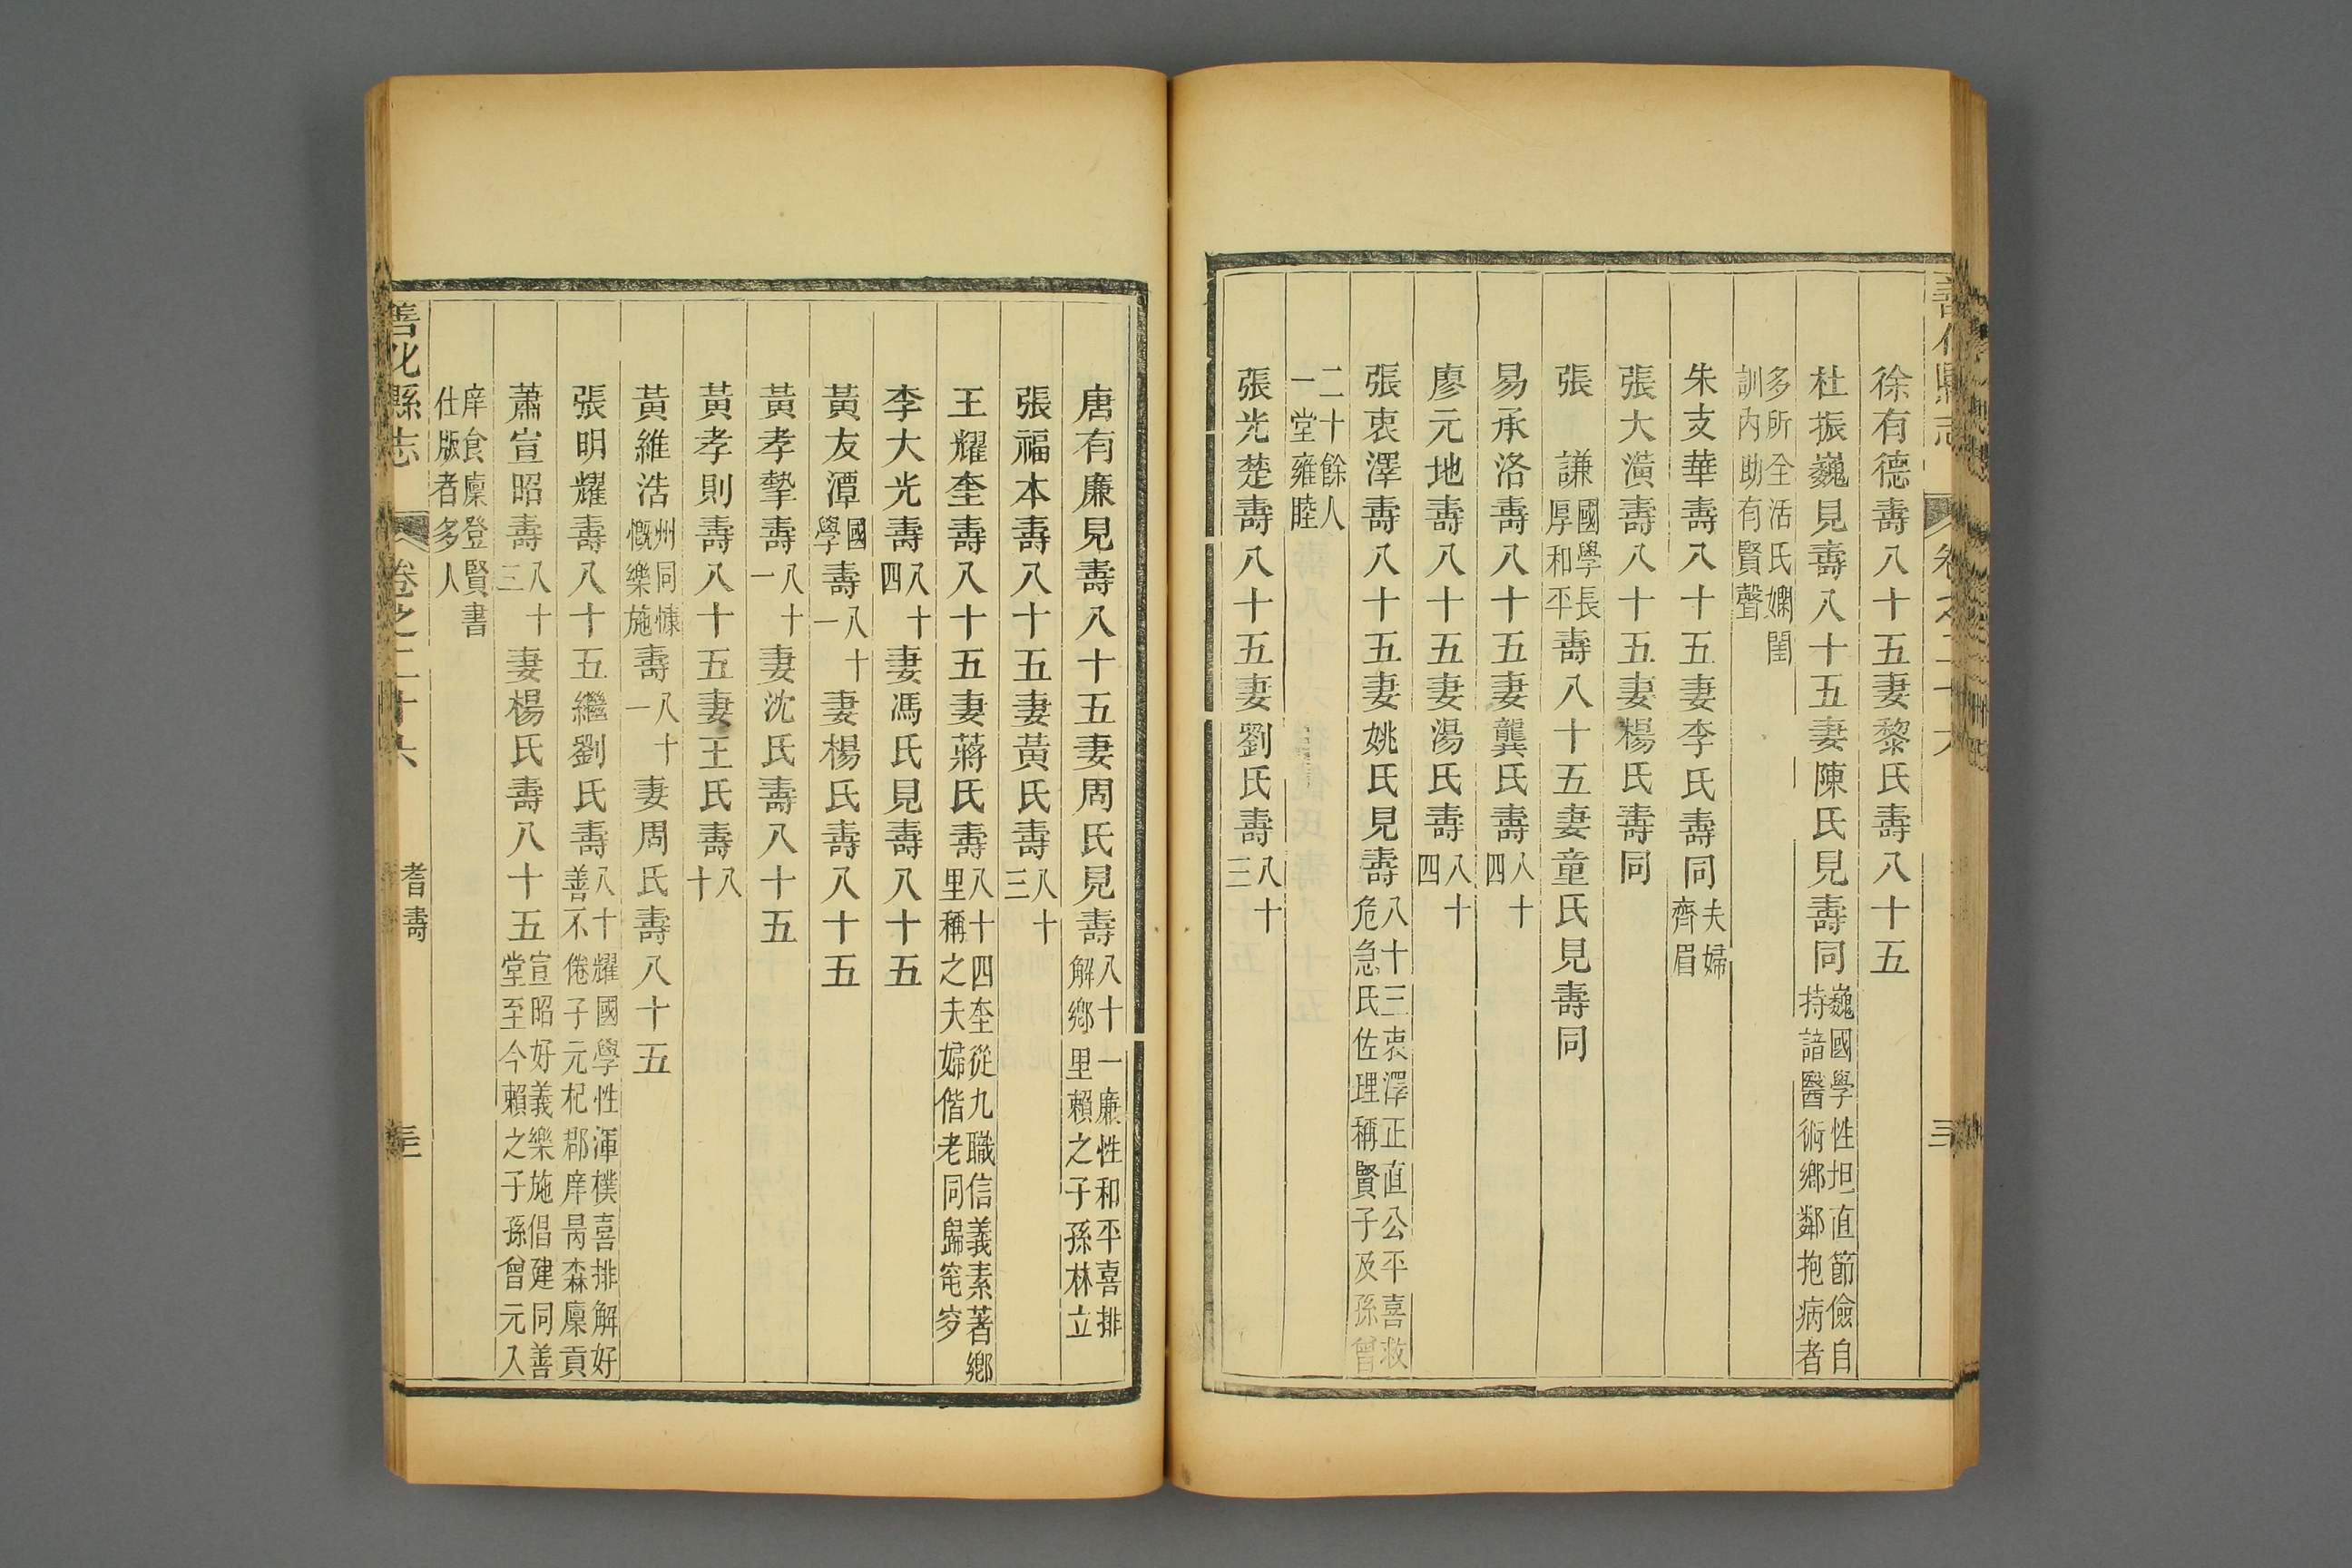 徐有德壽八十五妻黎氏壽八十五
杜振巍見壽八十五妻陳氏見壽同巍國學性坦直節儉自
持諳醫術鄉鄰抱病者
多所全活氏嫻閨
訓內助有賢聲
朱支華壽八十五妻李氏壽同夫婦
齊眉
張大潢壽八十五妻楊氏壽同
張 謙國學長
厚和平壽八十五妻童氏見壽同
易承洛壽八十五妻龔氏壽八十
四
廖元地壽八十五妻湯氏壽八十
四
張衷澤壽八十五妻姚氏見壽八十三衷澤正直公平喜救
危急氏佐理稱賢子及孫曾
二十餘人
一堂雍睦
張光楚壽八十五妻劉氏壽八十
三
唐有廉見壽八十五妻周氏見壽八十一廉性和平喜排
解鄉里賴之子孫林立
張福本壽八十五妻黃氏壽八十
三
王耀奎壽八十五妻蔣氏壽八十四奎從九職信義素著鄉
里稱之夫婦偕老同歸窀穸
李大光壽八十
四妻馮氏見壽八十五
黃友潭國
學壽八十
一妻楊氏壽八十五
黃孝摯壽八十
一妻沈氏壽八十五
黃孝則壽八十五妻王氏壽八
十
黃維浩州同慷
慨樂施壽八十
一妻周氏壽八十五
張明耀壽八十五繼劉氏壽八十耀國學性渾樸喜排解好
善不倦子元杞郡庠昺森廩貢
蕭宣昭壽八十
三妻楊氏壽八十五宣昭好義樂施倡建同善
堂至今賴之子孫曾元入
庠食廩登賢書
仕版者多人
善化縣志 卷之二十六 耆壽